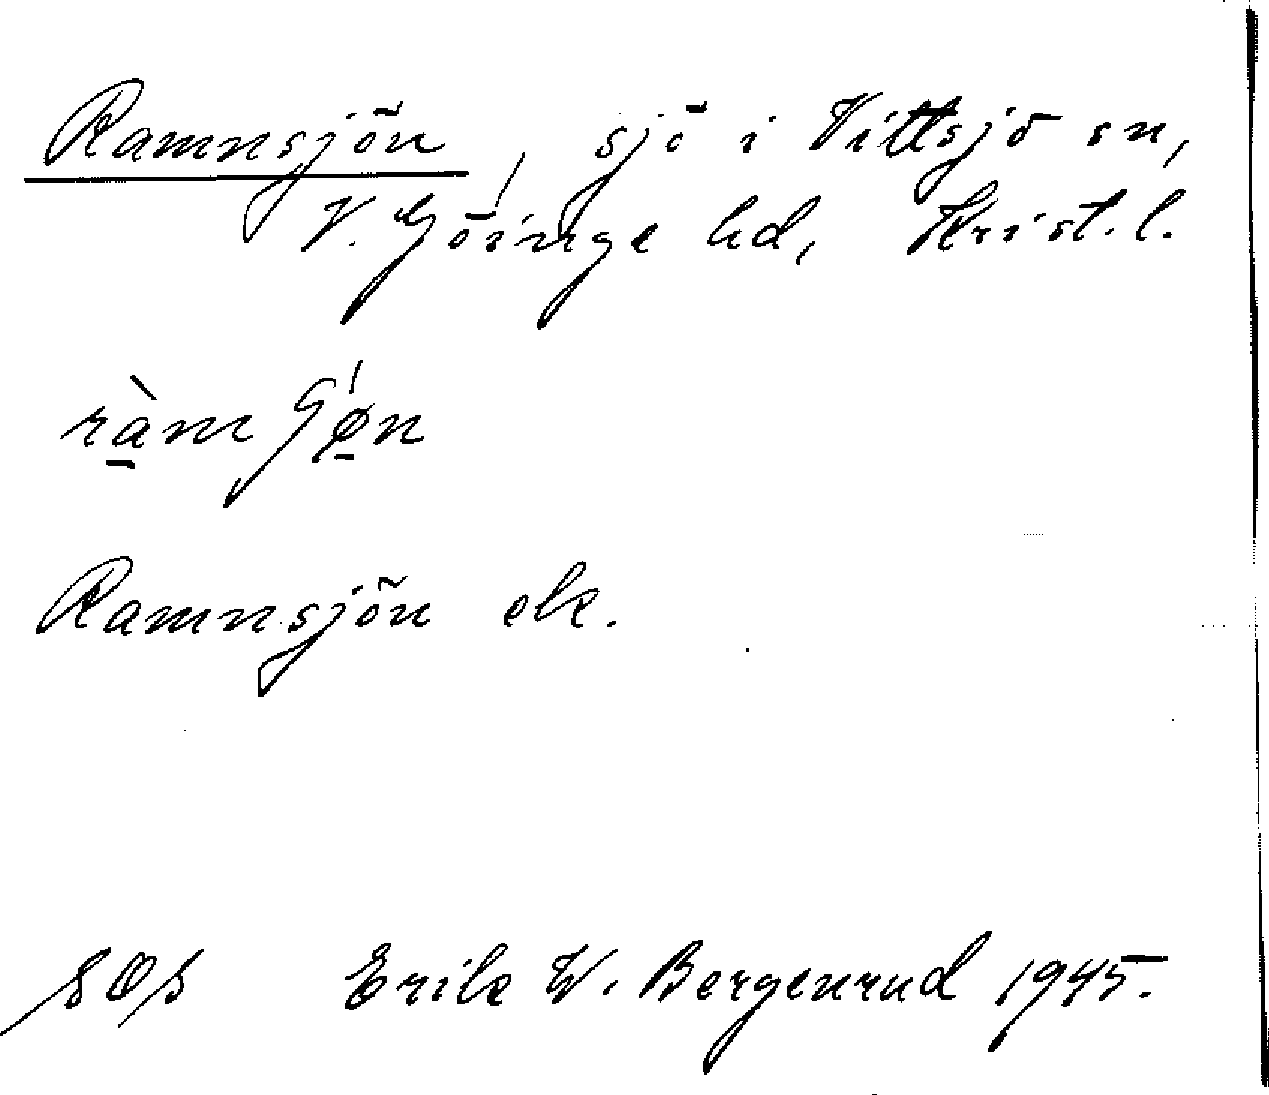 Ramnsjön, sjö i Vittsjö sn,
V. Göinge hd, Krist. l.
Ramnsjön ek.
Erik W. Bergenrud 1945.